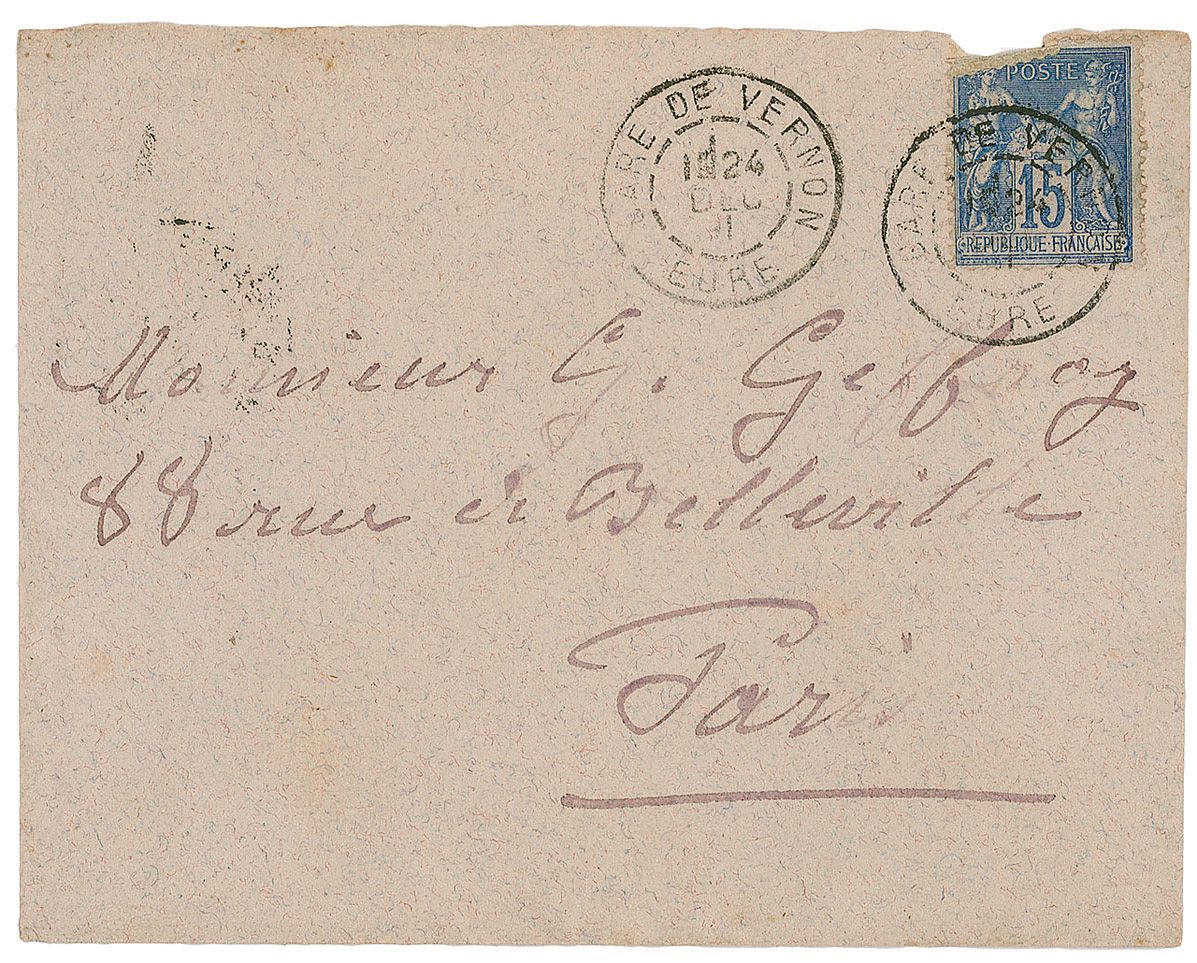 GARE DE VERNON
24
DEC
EURE
POSTE
15
REPUBLIQUE FRANÇAISE
GARE DE VER
24
EURE
Monsieur G. Geffroy
88 rue de Belleville
Paris